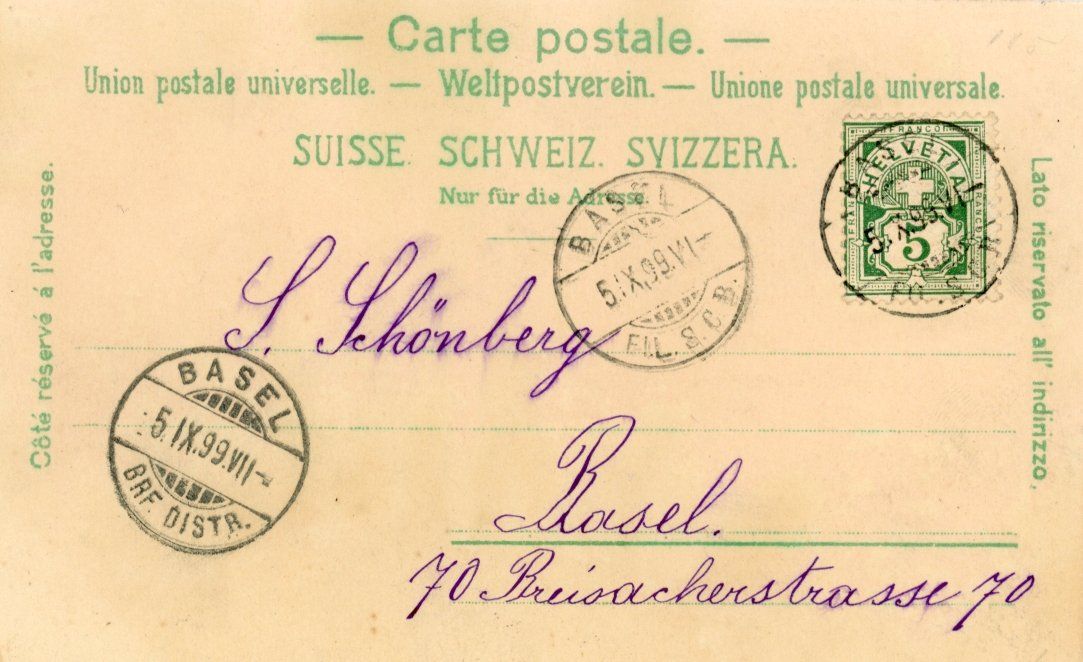 — Carte postale. —
Union postale universelle. — Weltpostverein. — Unione postale universale.
SUISSE. SCHWEIZ. SVIZZERA.
Nur für die Adresse.
Côté réservé á l'adresse.
Lato riservato all' indirizzo.
FRANCO
HELVETIA
FRANCO
FRANCO
5
BASEL
5.IX.99.VI-
FIL. S.C.B.
S. Schönberg
BASEL
5.IX.99.VII-
BRF. DISTR.
Basel.
70 Breisacherstrasse 70